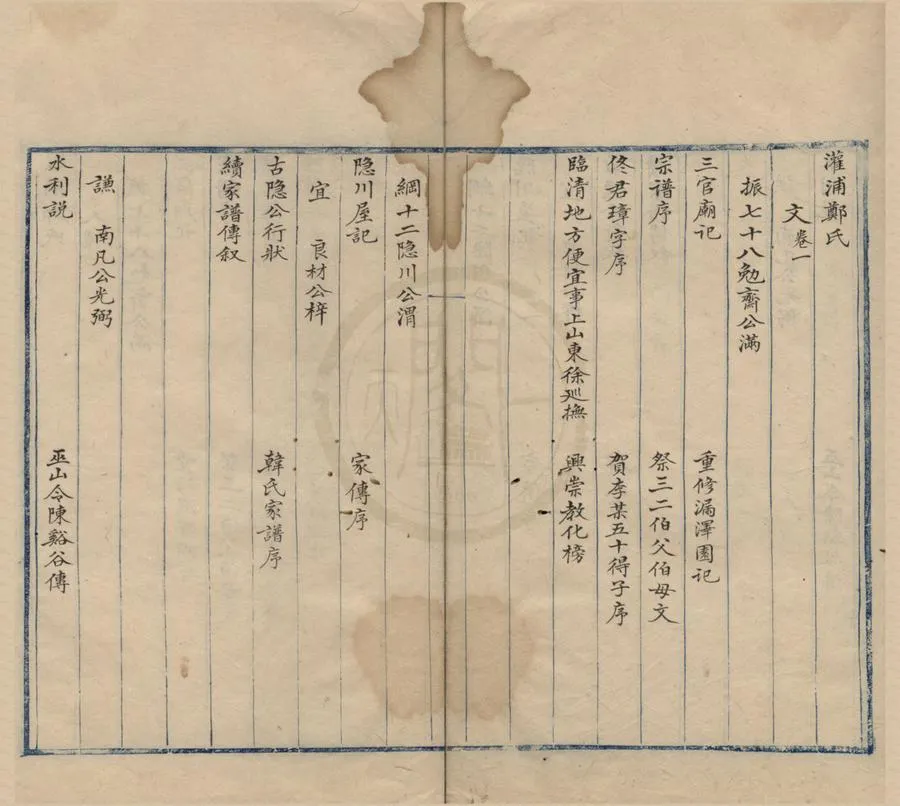 灌浦鄭氏
文卷一
振七十八勉齋公滿
三官廟記 重修漏澤園記
宗谱序 祭三二伯父伯母文
佟君璋字序 賀李某五十得子序
臨清地方便宜事上山東徐巡撫 興崇教化榜
綱十二隐川公渭
隐川屋記 家傳序
宜 良材公梓
古隐公行狀 韓氏家譜序
續家譜傳叙
謙 南凡公光弼
水利説 巫山令陳谿谷傳